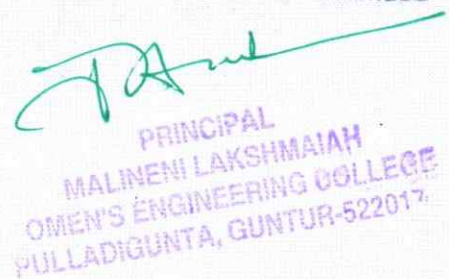 PRINCIPAL
MALINENI LAKSHMAIAH
OMEN'S ENGINEERING COLLEGE
PULLADIGUNTA, GUNTUR-522017